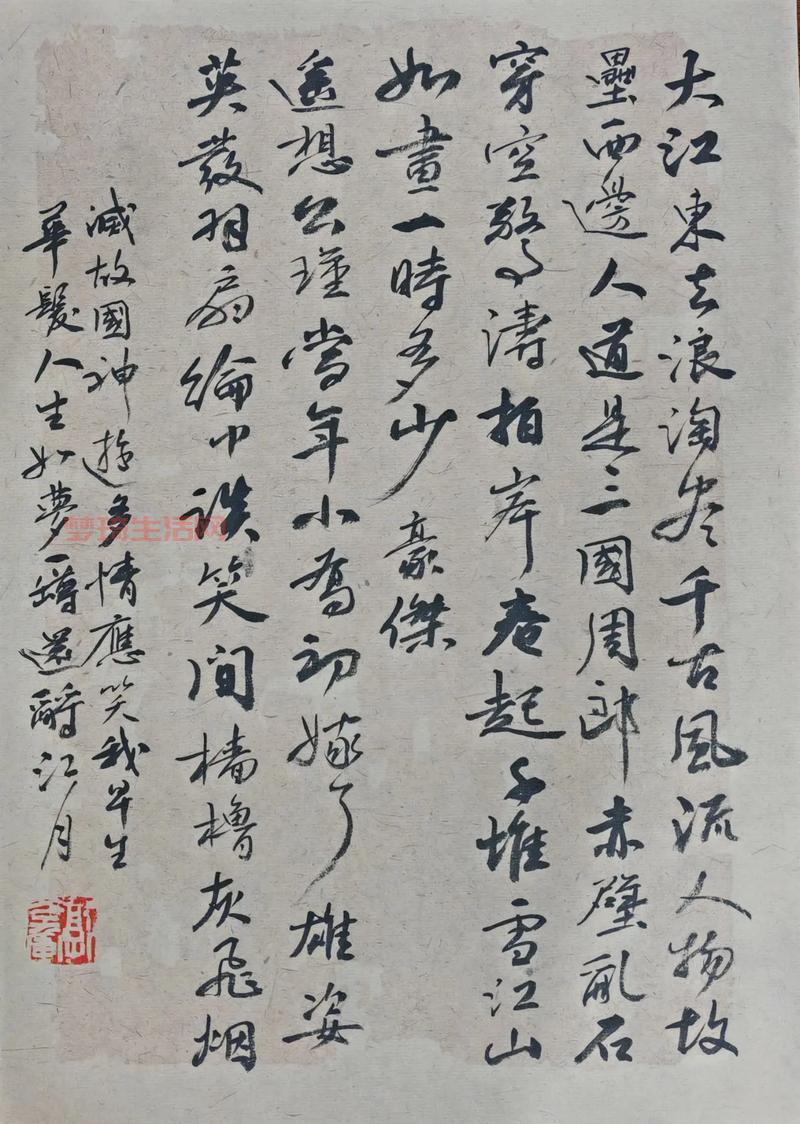 大江東去浪淘盡千古風流人物故
壘西邊人道是三國周郎赤壁亂石
穿空驚濤拍岸卷起千堆雪江山
如畫一時多少豪傑
遥想公瑾當年小喬初嫁了雄姿
英發羽扇綸巾談笑間檣櫓灰飛烟
滅故國神遊多情應笑我早生
華髮人生如夢一罇還酹江月
生活网